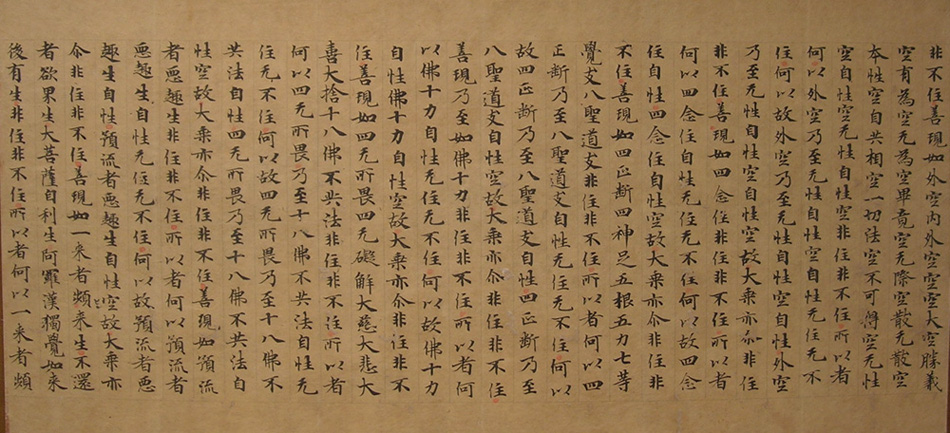 非不住善現如外空內外空空空大空勝義
空有為空无為空畢竟空无際空散无散空
本性空自共相空一切法空不可得空无性
空自性空无性自性空非住非不住所以者
何以外空乃至无性自性空自性无住无不
住何以故外空乃至无性自性空自性外空
乃至无性自性空自性空故大乘亦尒非住
非不住善現如四念住非住非不住所以者
何以四念住自性无住无不住何以故四念
住自性四念住自性空故大乘亦尒非住非
不住善現如四正斷四神足五根五力七等
覺支八聖道支非住非不住所以者何以四
正斷乃至八聖道支自性无住无不住何以
故四正斷乃至八聖道支自性四正斷乃至
八聖道支自性空故大乘亦尒非住非不住
善現乃至如佛十力非住非不住所以者何
以佛十力自性无住无不住何以故佛十力
自性佛十力自性空故大乘亦尒非住非不
住善現如四无所畏四无礙解大慈大悲大
喜大捨十八佛不共法非住非不住所以者
何以四无所畏乃至十八佛不共法自性无
住无不住何以故四无所畏乃至十八佛不
共法自性四无所畏乃至十八佛不共法自
性空故大乘亦尒非住非不住善現如預流
者惡趣生非住非不住所以者何以預流者
惡趣生自性无住无不住何以故預流者惡
趣生自性預流者惡趣生自性空故大乘亦
尒非住非不住善現如一来者頻来生不還
者欲果生大菩薩自利生阿羅漢獨覺如来
後有生非住非不住所以者何以一来者頻